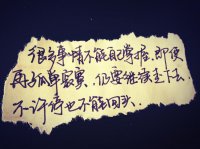 很多事情不能自己掌握，即使
再孤单寂寞，仍要继续走下去，
不许停也不能回头。